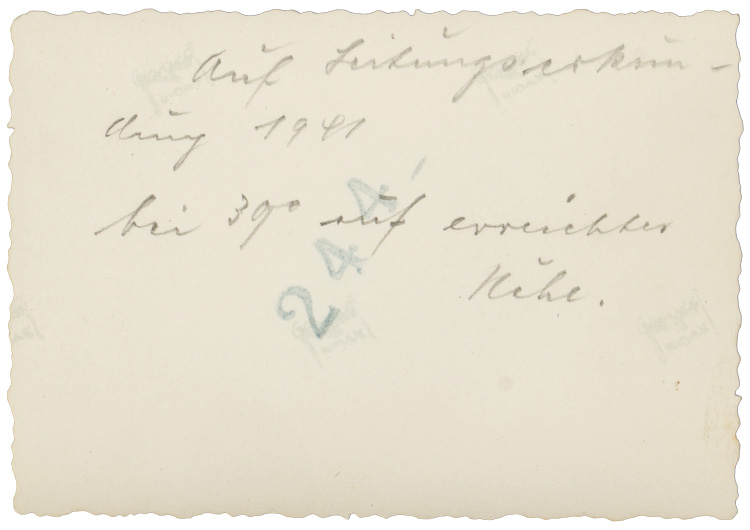 Auf Leitungserkun-
dung 1941
bei 39° auf erreichter
Höhe.
244